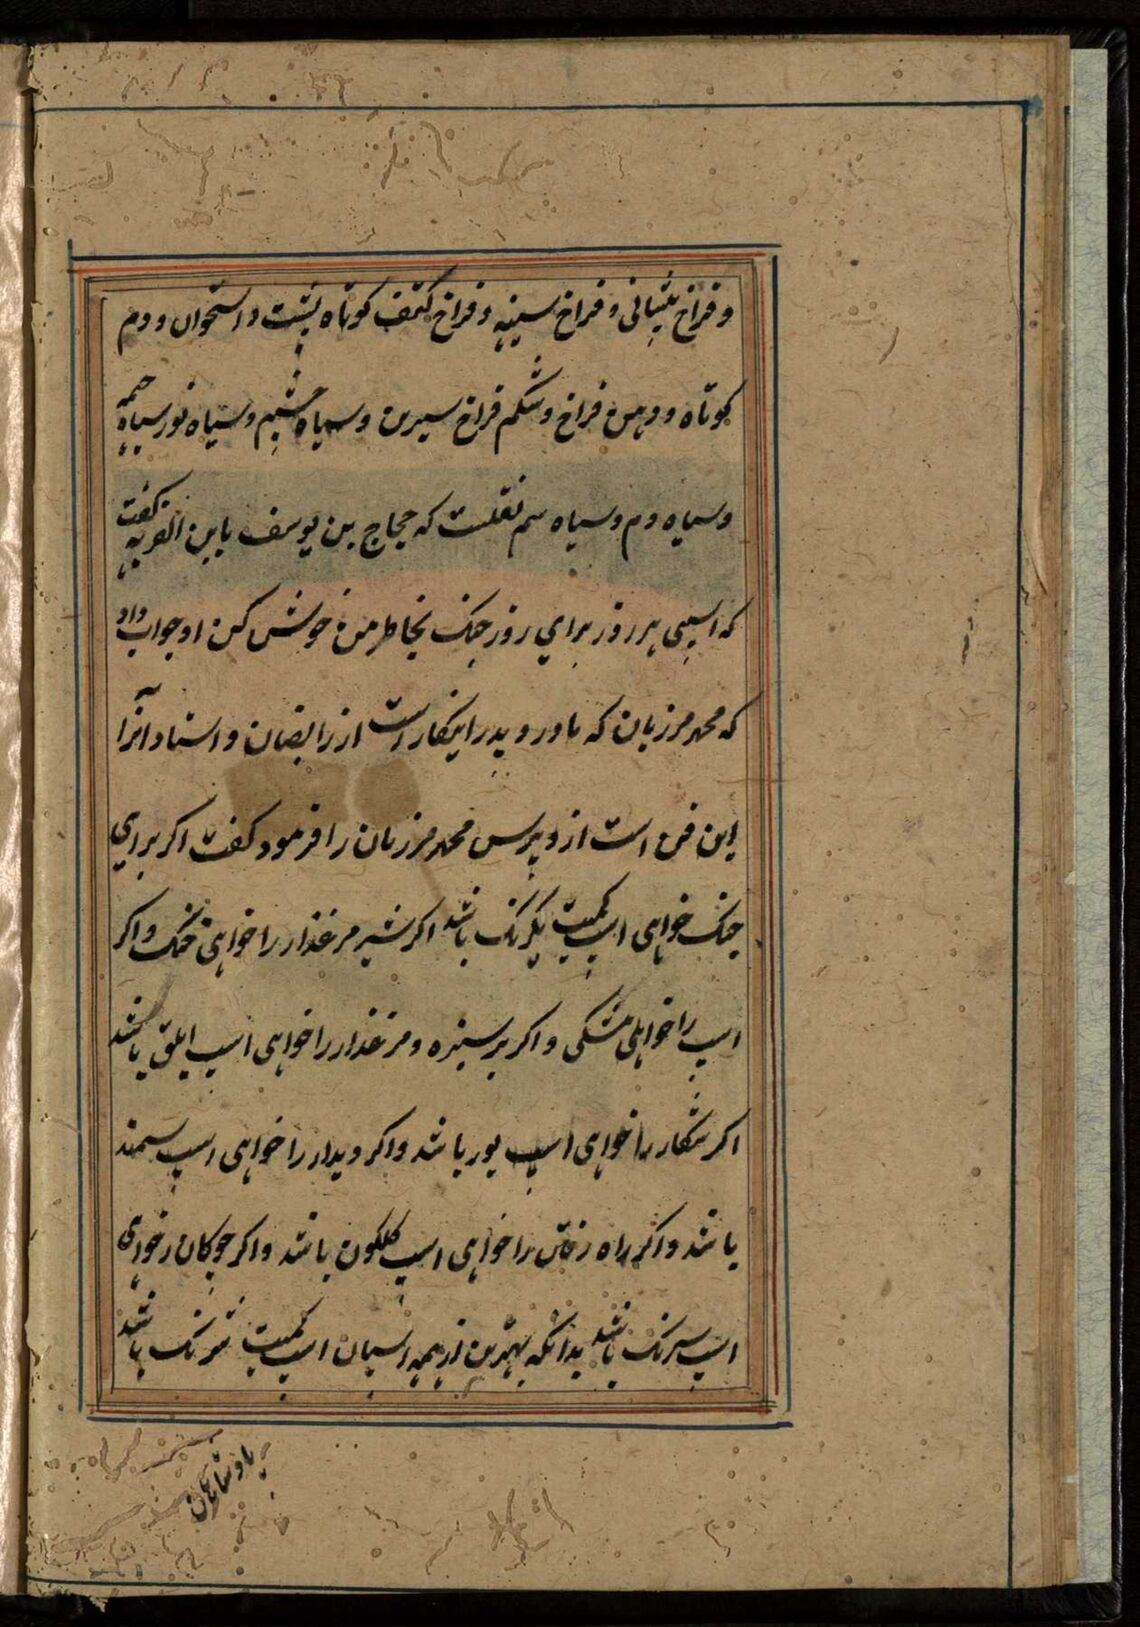 و فراخ پیشانی و فراخ سینه و فراخ کتف کوتاه پشت و استخوان و دم
کوتاه و دهن فراخ و شکم فراخ سیرین و سیاه چشم و سیاه سیاه
و سیاه دم و سیاه سم نقلست که حجاج بن یوسف بابن القریه گفت
که اسپی هر روز برای روز جنک بخاطر من خوش کن او جواب داد
که محمد مرزبان که اینکار است از و استاد آنرا
این فن است از و پرس محمد مرزبان را فرمود گفت اکر برای
جنک خواهی اسپ کمیت یکرنک باشد اکر مرغذار را خواهی خنک و اکر
اسپ را خواهی مشکی و اکر بر سبزه و مرغذار را خواهی اسپ ابلق باشد
اکر شکار را خواهی اسپ بور باشد و اکر دیدار را خواهی اسپ سمند
باشد و اکر راه رفتن را خواهی اسپ کلکون باشد و اکر چوکان خواهی
اسپ باشد بدانکه بهترین از همه اسپان اسپ کمیت باشد
پادشاهان